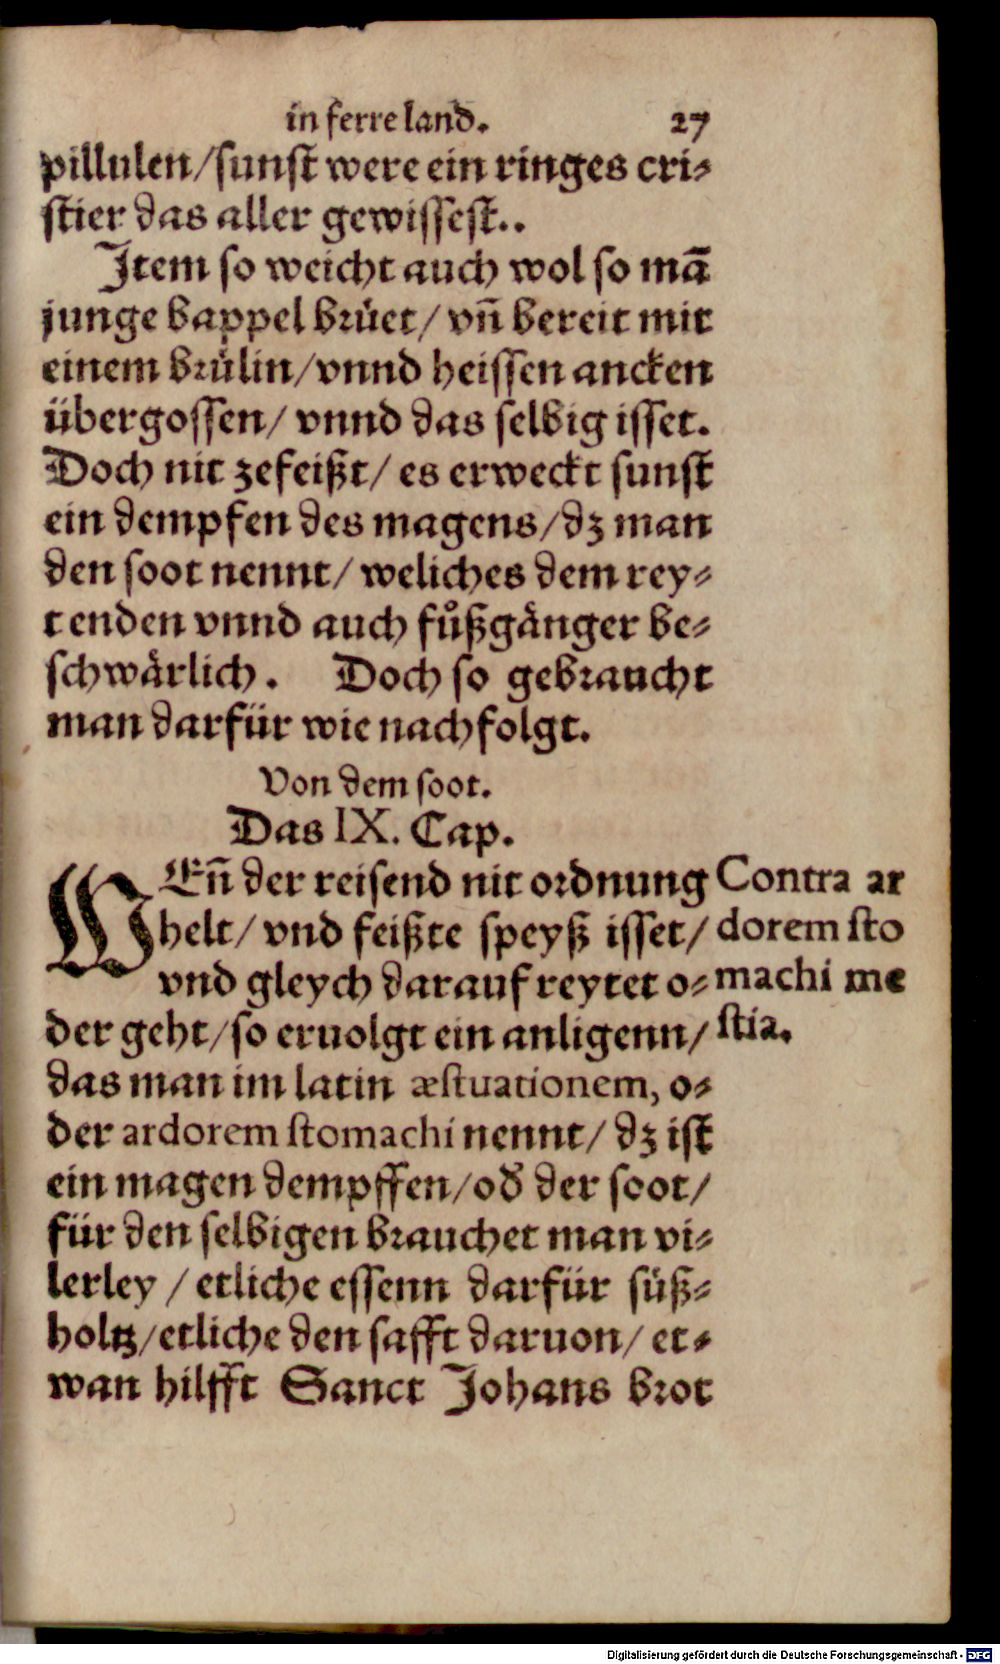 in ferre land. 27
pillulen/sunst were ein ringes cri⸗
stier das aller gewissest..
Item so weicht auch wol so mã
junge bappel brüet/ vñ bereit mit
einem brülin/vnnd heissen ancken
übergossen/ vnnd das selbig isset.
Doch nit zefeißt/ es erweckt sunst
ein dempfen des magens/dz man
den soot nennt/ weliches dem rey⸗
tenden vnnd auch fůßgänger be⸗
schwärlich. Doch so gebraucht
man darfür wie nachfolgt.
Von dem soot.
Das IX. Cap.
WEñ der reisend nit ordnung
helt/ vnd feißte speyß isset/
vnd gleych darauf reytet o⸗
der geht/so eruolgt ein anligenn/
das man im latin æstuationem, o⸗
der ardorem stomachi nennt/ dz ist
ein magen dempffen/od̕ der soot/
für den selbigen brauchet man vi⸗
lerley / etliche essenn darfür süß⸗
holtz/etliche den safft daruon/ et⸗
wan hilfft Sanct Johans brot
Contra ar
dorem sto
machi me
stia.
Digitalisierung gefördert durch die Deutsche Forschungsgemeinschaft - DFG